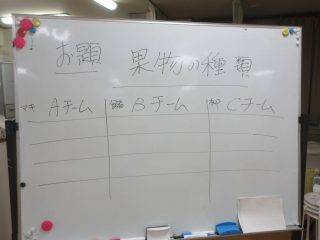 お題 果物の種類
マキ Aチーム Bチーム Cチーム